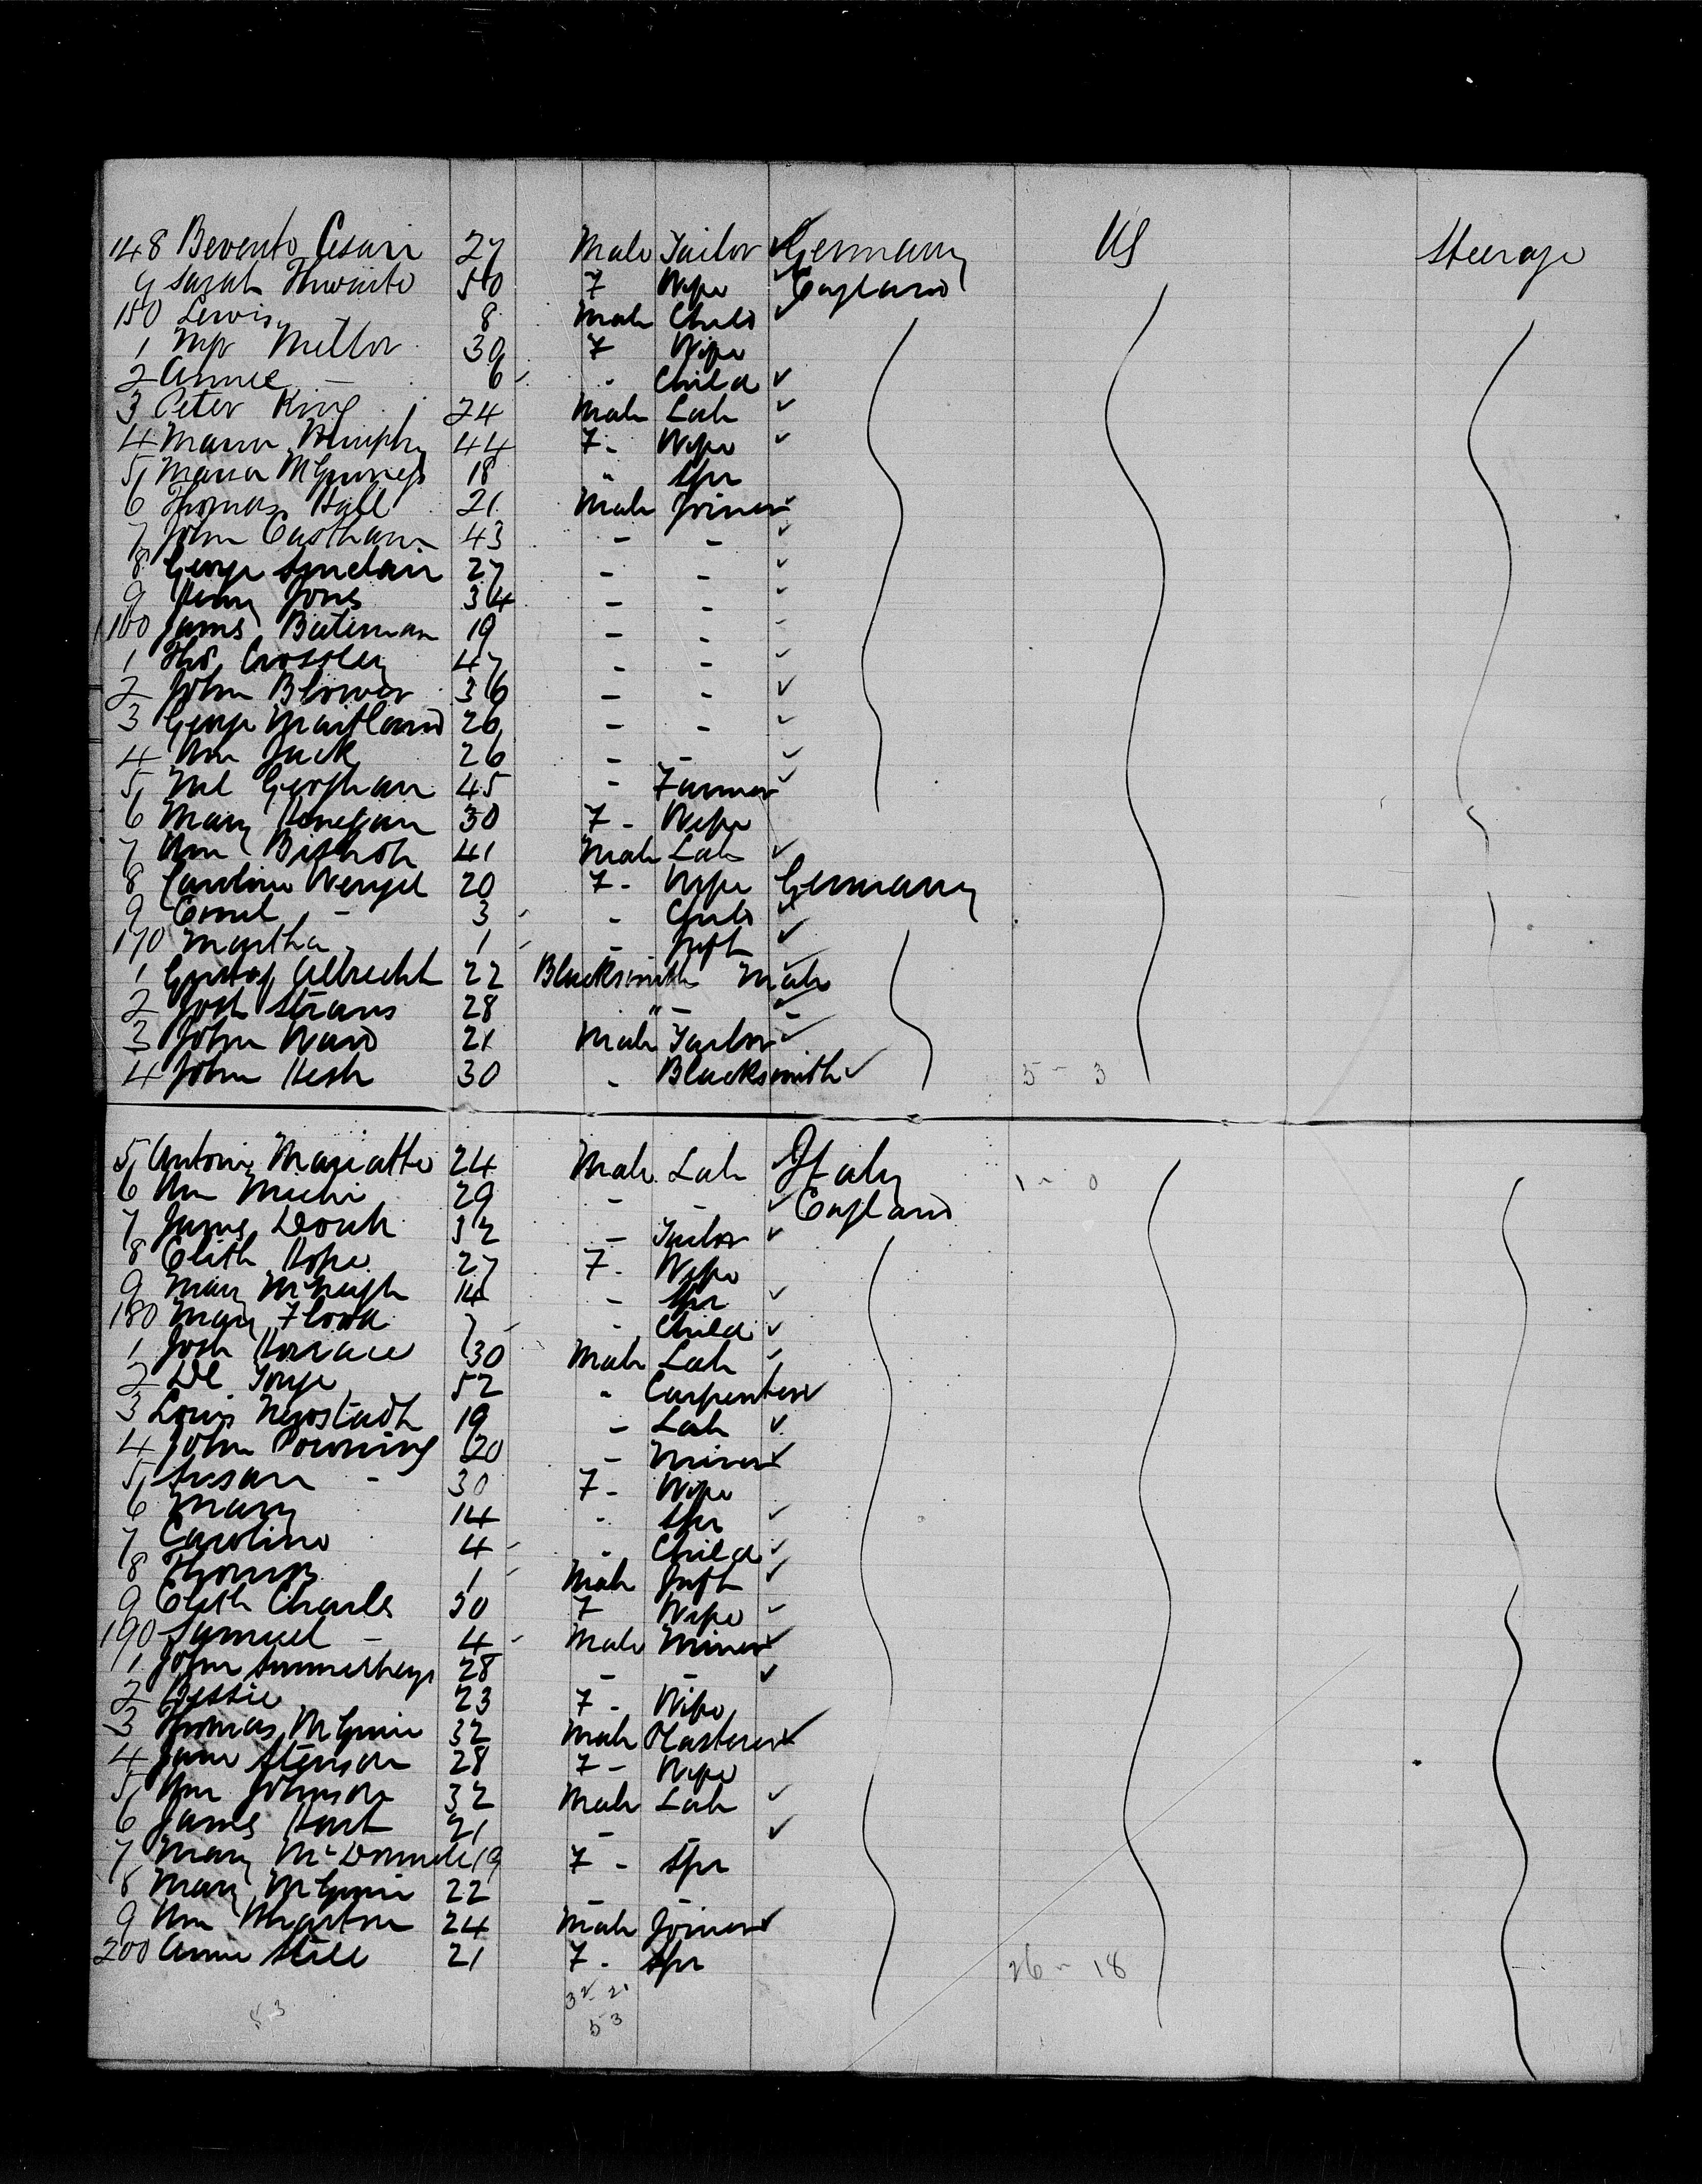 148 Bevento Cesari 27 Male Tailor Germany US Steerage
9 Sarah Thwaite 50 F Wife England
150 Lewis 8 Male Child
1 Mrs Mellor 30 F Wife
2 Annie - 6 " Child
3 Peter King 24 Male Lab
4 Maria Murphy 44 F - Wife
5 Maria McGuiness 18 " Spr
6 Thomas Hall 21 Male Joiner
7 John Eastham 43 - -
8 George Sinclair 27 - -
9 Henry Jones 34 - -
160 James Bateman 19 - -
1 Thos Crossley 47 - -
2 John Blower 36 - -
3 George Maitland 26 - -
4 Wm Jack 26 - -
5 45 - Farmer
6 Mary Henegan 30 F - Wife
7 Wm Bishop 41 Male Lab
8 Caroline Wengel 20 F - Wife Germany
9 Emil - 3 - Child
170 Martha 1 - Inft
1 Gustaf Albrecht 22 Blacksmith Male
2 Josh Straus 28 " - -
3 John Ward 21 Male Tailor
4 John Hesh 30 - Blacksmith 5 - 3
5 Antonio Mariatto 24 Male Lab Italy 1 - 0
6 Wm Michi 29 - - England
7 James 32 - Tailor
8 Elith Hope 27 F - Wife
9 Mary McHugh 14 - Spr
180 Mary Flood 7 - Child
1 Josh Horrace 30 Male Lab
2 De Jonge 52 " Carpenter
3 Louis Neustadt 19 - Lab
4 John Powning 20 - Miner
5 Susan - 30 F - Wife
6 Mary 14 - Spr
7 Caroline 4 - Child
8 Thomas 1 Male Inft
9 Elith Charles 30 F Wife
190 Samuel - 4 Male Miner
1 John Summerhays 28 - -
2 Bessie 23 F - Wife
3 Thomas McGuire 32 Male Plasterer
4 Jane Stenson 28 F - Wife
5 Wm Johnson 32 Male Lab
6 James Hart 21 - -
7 Mary McDonnell 19 F - Spr
8 Mary McGuire 22 - -
9 Wm Wharton 24 Male Joiner
200 Annie Still 21 F - Spr 26 - 18
32 - 21
53 53